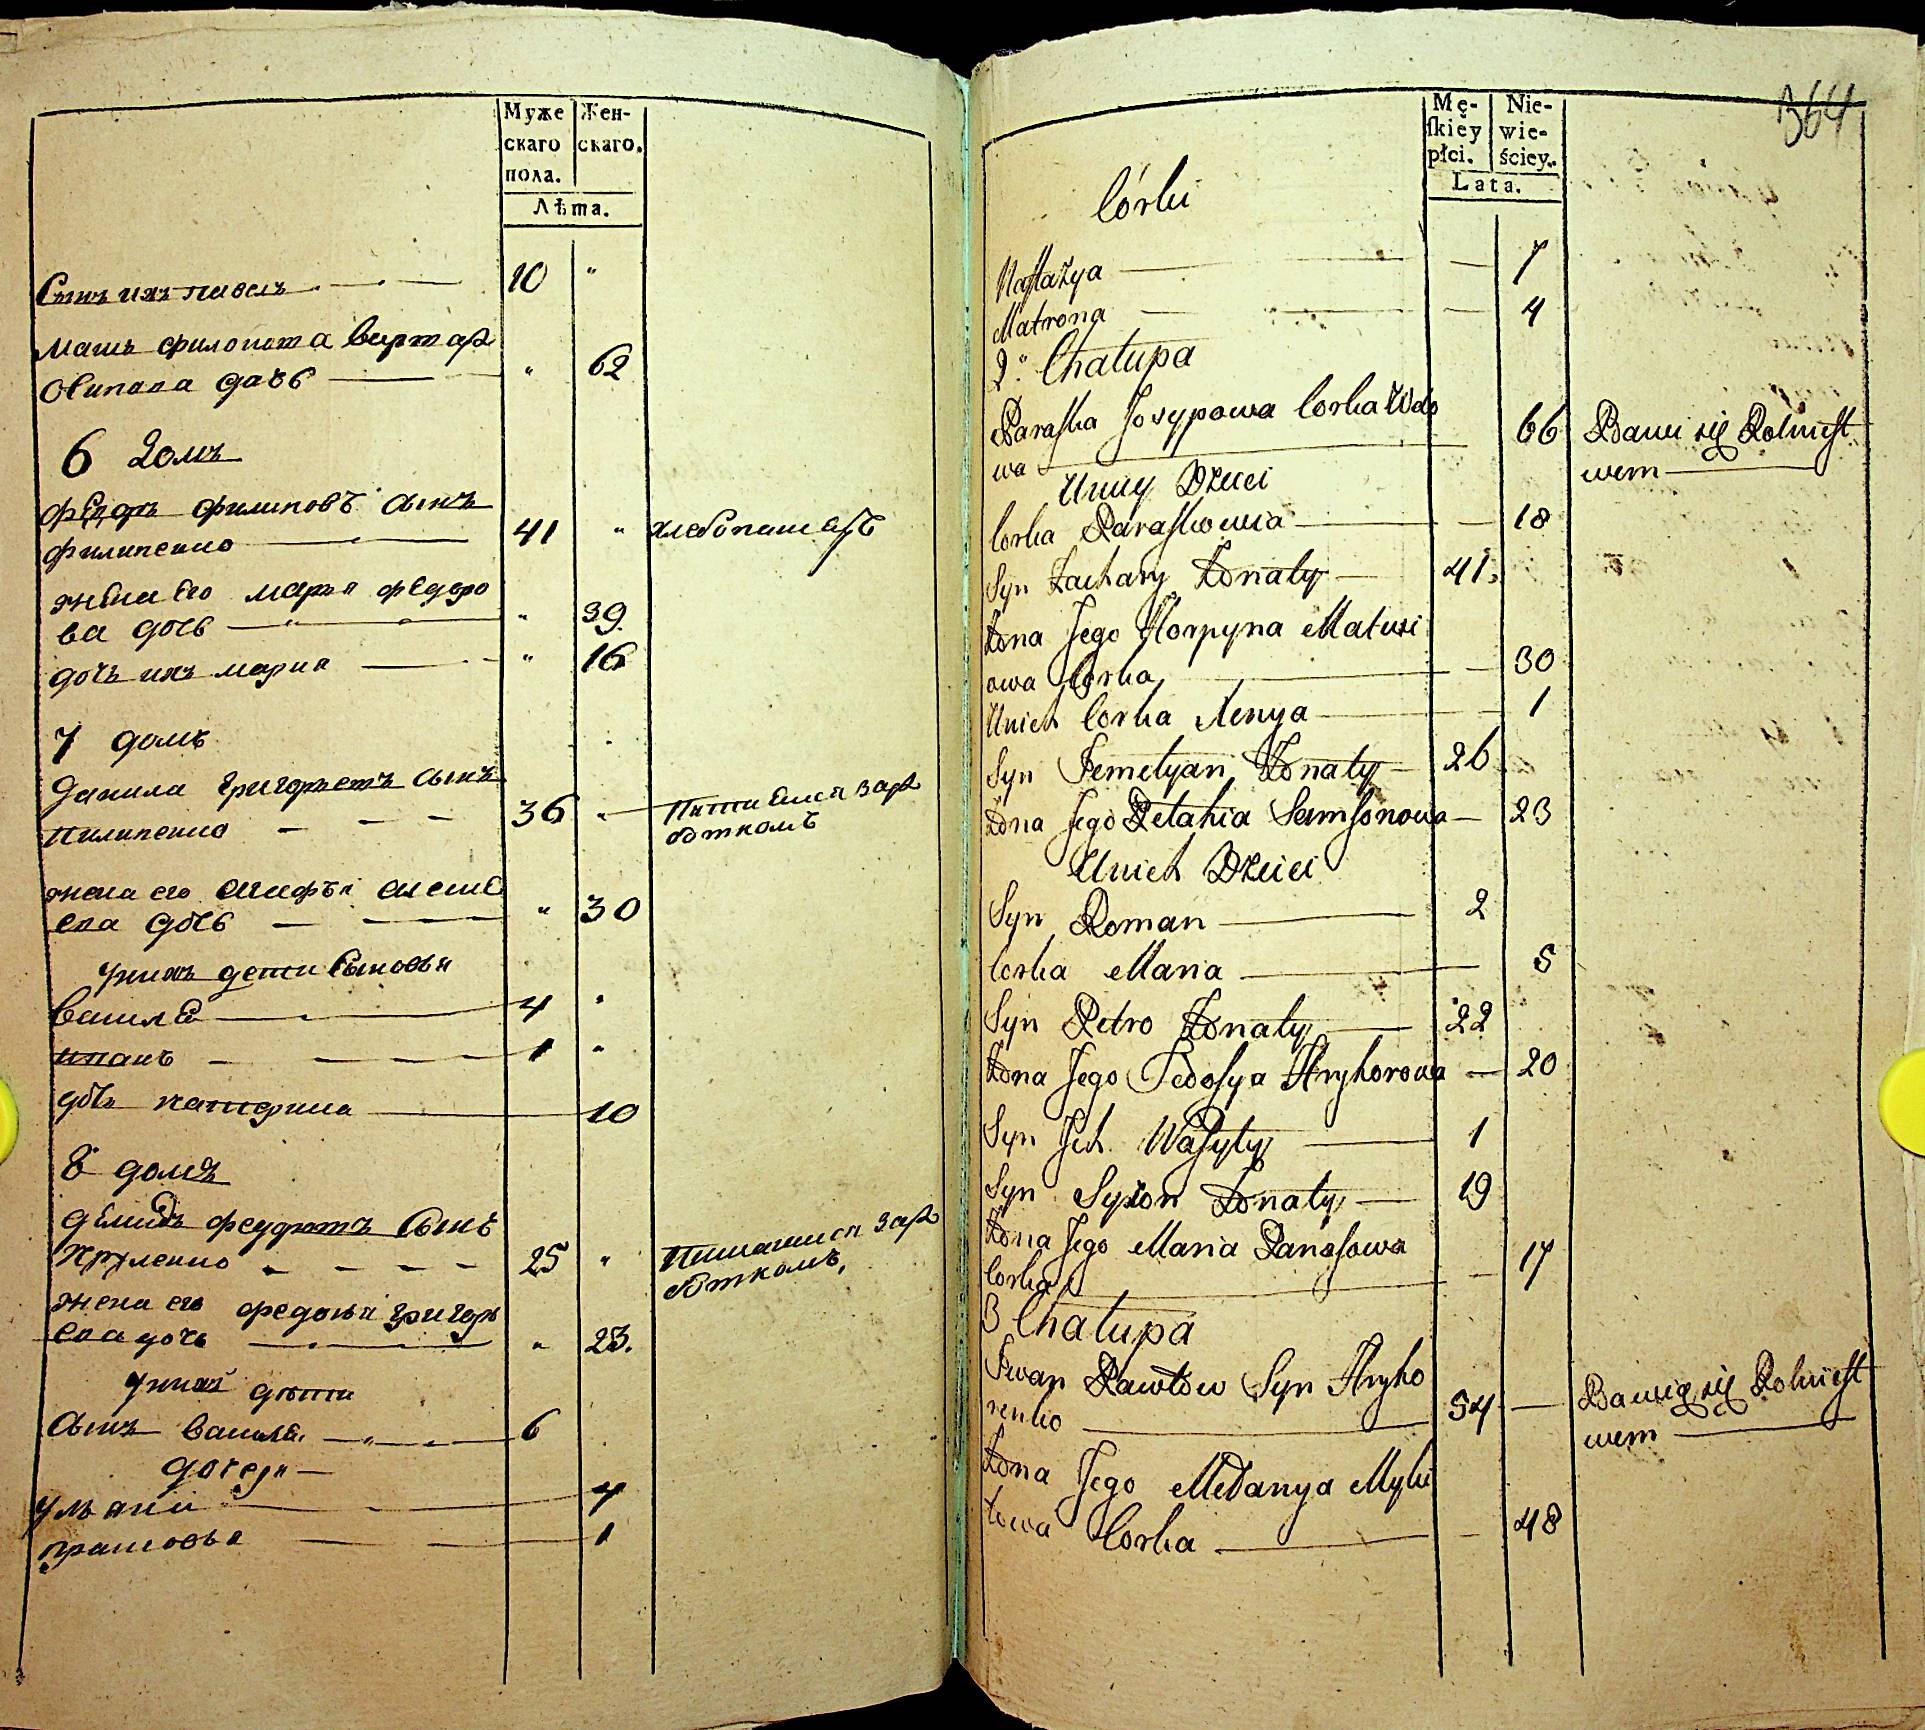 Муже
скаго
пола.
Жен-
скаго.
Лѣта.
Сынъ ихъ павелъ 10 "
мать филопота
овипава дачь " 62
6 домъ
федоръ филиповъ сынъ
филипенко 41 " хлебопашецъ
жена его марья федоро
ва дочь " 39.
дочь ихъ мария " 16
7 домъ
данила григорьевъ сынъ
пилипенко 36 питаемся зара
боткомъ
жена его агафья алекс
ева дочь " 30
унихъ дети Сыновья
василь 4 "
иванъ 1 "
дочь катерина 10
8 домъ
демидъ федоровъ Сынъ
25 " питаемся зара
боткомъ,
жена его федосья григорь
ева дочь " 23.
унихъ дети
Сынъ василь 6
дочери
ульяна 4
прасковья 1
364
Mę-
skiey
płci.
Nie-
wie-
ściey.
Lata.
Córki
Nastazya 7
Matrona 4
2" Chałupa
Paraska Josypowa Corka Wdo
wa 66 Bawi się Rolnict
wem
Uniey Dzieci
Corka Paraskowia 18
Syn Zachary Zonaty 41.
Zona Jego Horpyna Matwi
owa Corka 30
Unich Corka Xenya 1
Syn Jemelyan Zonaty 26
Zona Jego Pelahia Samsonowa 23
Unich Dzieci
Syn Roman 2
Corka Maria 5
Syn Petro Zonaty 22
Zona Jego Fedosya Hryhorowa 20
Syn Ich Wasyly 1
Syn Symon Zonaty 19
Zona Jego Maria Panasowa
Corka 17
3 Chałupa
Iwan Pawłow Syn Hryho
renko 54 Bawią się Rolnict
wem
Zona Jego Mełanya Myki
towa Corka 48